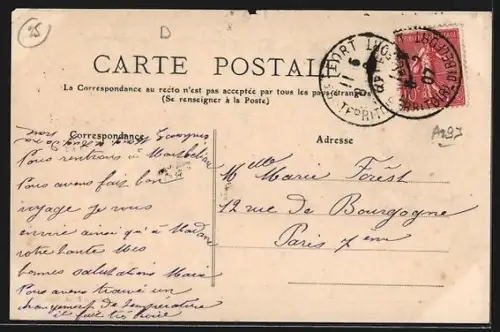 25
D
CARTE POSTALE
La Correspondance au recto n'est pas acceptée par tous les pays étrangers
(Se renseigner à la Poste)
BELFORT
TERRITOIRE
Correspondance
Adresse
A297
Nous rentrons à Montbéliard
Nous avons fait bon
voyage je vous
envoie ainsi qu'à Madame
votre tante mes
bonnes salutations Marie
Nous avons trouvé un
changement de température
il fait très froid
Mlle Marie Forest
12 rue de Bourgogne
Paris 7 ème